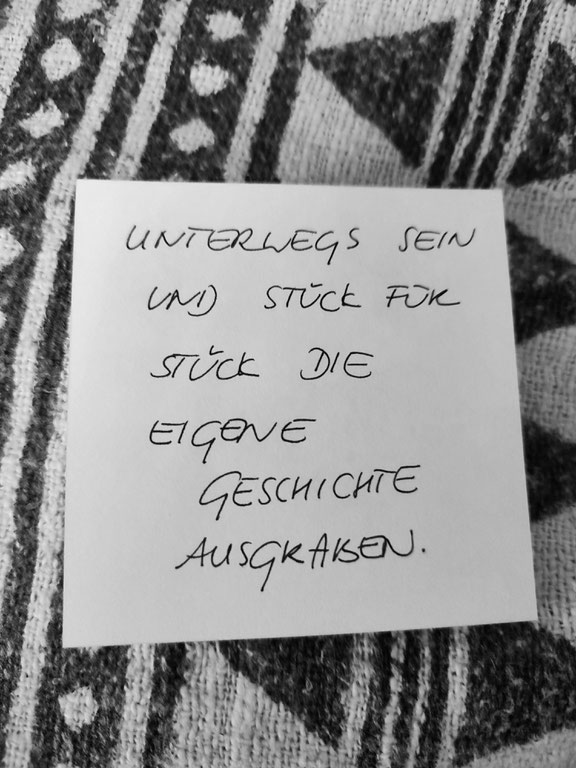 UNTERWEGS SEIN
UND STÜCK FÜR
STÜCK DIE
EIGENE
GESCHICHTE
AUSGRABEN.